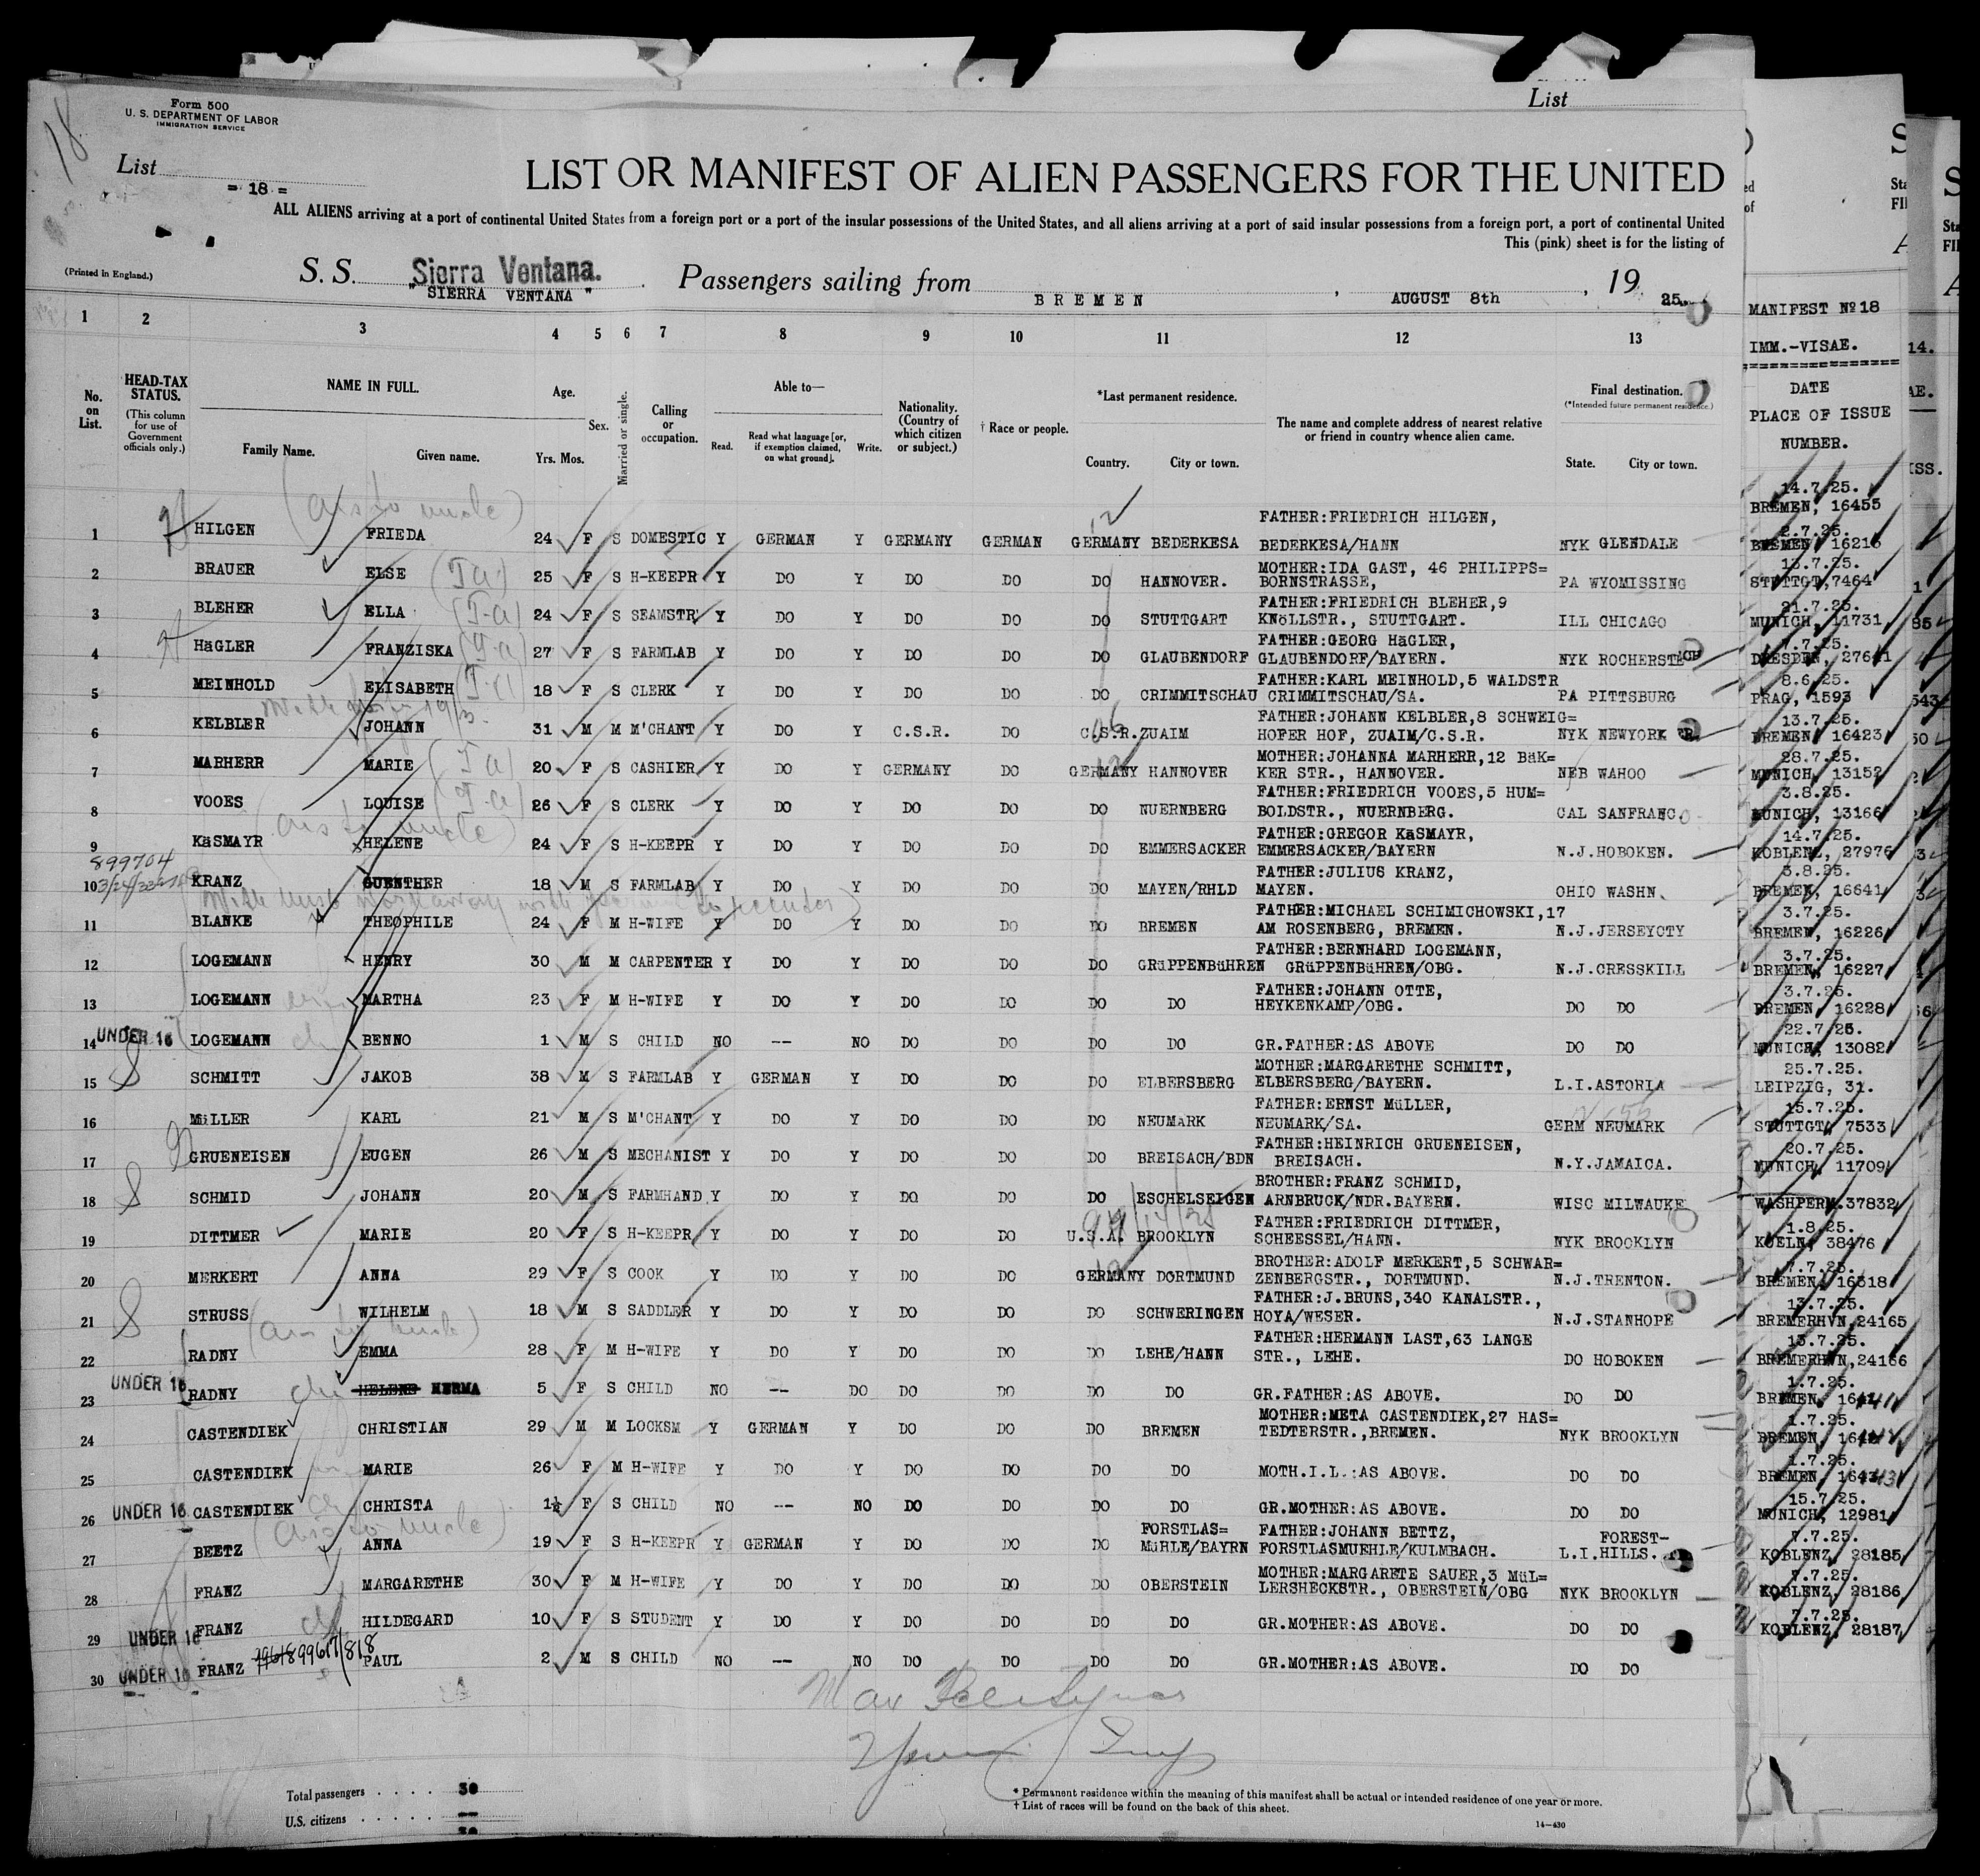 Form 500
U. S. DEPARTMENT OF LABOR
IMMIGRATION SERVICE
18
List
List
= 18 =
LIST OR MANIFEST OF ALIEN PASSENGERS FOR THE UNITED
ALL ALIENS arriving at a port of continental United States from a foreign port or a port of the insular possessions of the United States, and all aliens arriving at a port of said insular possessions from a foreign port, a port of continental United
This (pink) sheet is for the listing of
(Printed in England.)
S. S. Sierra Ventana. Passengers sailing from BREMEN, AUGUST 8th, 19 25.
"SIERRA VENTANA"
1 2 3 4 5 6 7 8 9 10 11 12 13
No. on List.
HEAD-TAX STATUS.
(This column for use of Government officials only.)
NAME IN FULL.
Family Name. Given name.
Age.
Yrs. Mos.
Sex.
Married or single.
Calling or occupation.
Able to—
Read. Read what language [or, if exemption claimed, on what ground]. Write.
Nationality. (Country of which citizen or subject.)
† Race or people.
*Last permanent residence.
Country. City or town.
The name and complete address of nearest relative or friend in country whence alien came.
Final destination.
(*Intended future permanent residence.)
State. City or town.
MANIFEST Nº 18
IMM.-VISAE.
DATE
PLACE OF ISSUE
NUMBER.
14.7.25.
BREMEN, 16455
FATHER:FRIEDRICH HILGEN,
1 HILGEN FRIEDA 24 F S DOMESTIC Y GERMAN Y GERMANY GERMAN GERMANY BEDERKESA BEDERKESA/HANN NYK GLENDALE
2.7.25.
BREMEN, 16216
MOTHER:IDA GAST, 46 PHILIPPS=
2 BRAUER ELSE 25 F S H-KEEPR Y DO Y DO DO DO HANNOVER. BORNSTRASSE, PA WYOMISSING
STUTTGT,7464
FATHER:FRIEDRICH BLEHER,9
3 BLEHER ELLA 24 F S SEAMSTR Y DO Y DO DO DO STUTTGART KNöLLSTR., STUTTGART. ILL CHICAGO
21.7.25.
MUNICH, 11731
FATHER:GEORG HäGLER,
4 HäGLER FRANZISKA 27 F S FARMLAB Y DO Y DO DO DO GLAUBENDORF GLAUBENDORF/BAYERN. NYK ROCHERSTE
7.7.25.
DRESDEN, 27641
FATHER:KARL MEINHOLD,5 WALDSTR
5 MEINHOLD ELISABETH 18 F S CLERK Y DO Y DO DO DO CRIMMITSCHAU CRIMMITSCHAU/SA. PA PITTSBURG
8.6.25.
PRAG, 1593
FATHER:JOHANN KELBLER,8 SCHWEIG=
6 KELBLER JOHANN 31 M M M'CHANT Y DO Y C.S.R. DO C.S.R. ZUAIM HOFER HOF, ZUAIM/C.S.R. NYK NEWYORK
13.7.25.
BREMEN, 16423
MOTHER:JOHANNA MARHERR,12 BäK=
7 MARHERR MARIE 20 F S CASHIER Y DO Y GERMANY DO GERMANY HANNOVER KER STR., HANNOVER. NEB WAHOO
28.7.25.
MUNICH, 13152
FATHER:FRIEDRICH VOOES,5 HUM=
8 VOOES LOUISE 26 F S CLERK Y DO Y DO DO DO NUERNBERG BOLDSTR., NUERNBERG. CAL SANFRANC.
3.8.25.
MUNICH, 13166
FATHER:GREGOR KäSMAYR,
9 KäSMAYR HELENE 24 F S H-KEEPR Y DO Y DO DO DO EMMERSACKER EMMERSACKER/BAYERN N.J.HOBOKEN.
14.7.25.
KOBLENZ, 27976
899704
FATHER:JULIUS KRANZ,
10 KRANZ GUENTHER 18 M S FARMLAB Y DO Y DO DO DO MAYEN/RHLD MAYEN. OHIO WASHN.
3.8.25.
BREMEN, 16641
FATHER:MICHAEL SCHIMICHOWSKI,17
11 BLANKE THEOPHILE 24 F M H-WIFE Y DO Y DO DO DO BREMEN AM ROSENBERG, BREMEN. N.J.JERSEYCTY
3.7.25.
BREMEN, 16226
FATHER:BERNHARD LOGEMANN,
12 LOGEMANN HENRY 30 M M CARPENTER Y DO Y DO DO DO GRüPPENBüHREN GRüPPENBüHREN/OBG. N.J.CRESSKILL
3.7.25.
BREMEN, 16227
FATHER:JOHANN OTTE,
13 LOGEMANN MARTHA 23 F M H-WIFE Y DO Y DO DO DO DO HEYKENKAMP/OBG. DO DO
3.7.25.
BREMEN, 16228
14 UNDER 16 LOGEMANN BENNO 1 M S CHILD NO -- NO DO DO DO DO GR.FATHER:AS ABOVE DO DO
22.7.25.
MUNICH, 13082
MOTHER:MARGARETHE SCHMITT,
15 SCHMITT JAKOB 38 M S FARMLAB Y GERMAN Y DO DO DO ELBERSBERG ELBERSBERG/BAYERN. L.I.ASTORIA
25.7.25.
LEIPZIG, 31.
FATHER:ERNST MüLLER,
16 MüLLER KARL 21 M S M'CHANT Y DO Y DO DO DO NEUMARK NEUMARK/SA. GERM NEUMARK
15.7.25.
STUTTGT, 7533
FATHER:HEINRICH GRUENEISEN,
17 GRUENEISEN EUGEN 26 M S MECHANIST Y DO Y DO DO DO BREISACH/BDN BREISACH. N.Y.JAMAICA.
20.7.25.
MUNICH, 11709
BROTHER:FRANZ SCHMID,
18 SCHMID JOHANN 20 M S FARMHAND Y DO Y DO DO DO ESCHELSEIGEN ARNBRUCK/NDR.BAYERN. WISC MILWAUKE
WASHPERM.37832
FATHER:FRIEDRICH DITTMER,
19 DITTMER MARIE 20 F S H-KEEPR Y DO Y DO DO U.S.A. BROOKLYN SCHEESSEL/HANN. NYK BROOKLYN
1.8.25.
KOELN, 38476
BROTHER:ADOLF MERKERT,5 SCHWAR=
20 MERKERT ANNA 29 F S COOK Y DO Y DO DO GERMANY DORTMUND ZENBERGSTR., DORTMUND. N.J.TRENTON.
7.7.25.
BREMEN, 16318
FATHER:J.BRUNS,340 KANALSTR.,
21 STRUSS WILHELM 18 M S SADDLER Y DO Y DO DO DO SCHWERINGEN HOYA/WESER. N.J.STANHOPE
13.7.25.
BREMERHVN,24165
FATHER:HERMANN LAST,63 LANGE
22 RADNY EMMA 28 F M H-WIFE Y DO Y DO DO DO LEHE/HANN STR., LEHE. DO HOBOKEN
13.7.25.
BREMERHVN,24166
23 UNDER 16 RADNY HELENE 5 F S CHILD NO -- DO DO DO DO DO GR.FATHER:AS ABOVE. DO DO
1.7.25.
BREMEN,
MOTHER:META CASTENDIEK,27 HAS=
24 CASTENDIEK CHRISTIAN 29 M M LOCKSM Y GERMAN Y DO DO DO BREMEN TEDTERSTR.,BREMEN. NYK BROOKLYN
1.7.25.
BREMEN,
25 CASTENDIEK MARIE 26 F M H-WIFE Y DO Y DO DO DO DO MOTH.I.L.:AS ABOVE. DO DO
1.7.25.
BREMEN,
26 UNDER 16 CASTENDIEK CHRISTA 1½ F S CHILD NO -- NO DO DO DO DO GR.MOTHER:AS ABOVE. DO DO
15.7.25.
MUNICH, 12981
FORSTLAS= FATHER:JOHANN BETTZ, FOREST-
27 BEETZ ANNA 19 F S H-KEEPR Y GERMAN Y DO DO DO MüHLE/BAYRN FORSTLASMUEHLE/KULMBACH. L.I.HILLS.
7.7.25.
KOBLENZ, 28185
MOTHER:MARGARETE SAUER,3 MüL=
28 FRANZ MARGARETHE 30 F M H-WIFE Y DO Y DO DO DO OBERSTEIN LERSHECKSTR., OBERSTEIN/OBG NYK BROOKLYN
7.7.25.
KOBLENZ, 28186
29 UNDER 16 FRANZ HILDEGARD 10 F S STUDENT Y DO Y DO DO DO DO GR.MOTHER:AS ABOVE. DO DO
7.7.25.
KOBLENZ, 28187
30 UNDER 16 FRANZ PAUL 2 M S CHILD NO -- NO DO DO DO DO GR.MOTHER:AS ABOVE. DO DO
Total passengers . . . . 30
U.S. citizens . . . . . --
30
* Permanent residence within the meaning of this manifest shall be actual or intended residence of one year or more.
† List of races will be found on the back of this sheet.
14—430